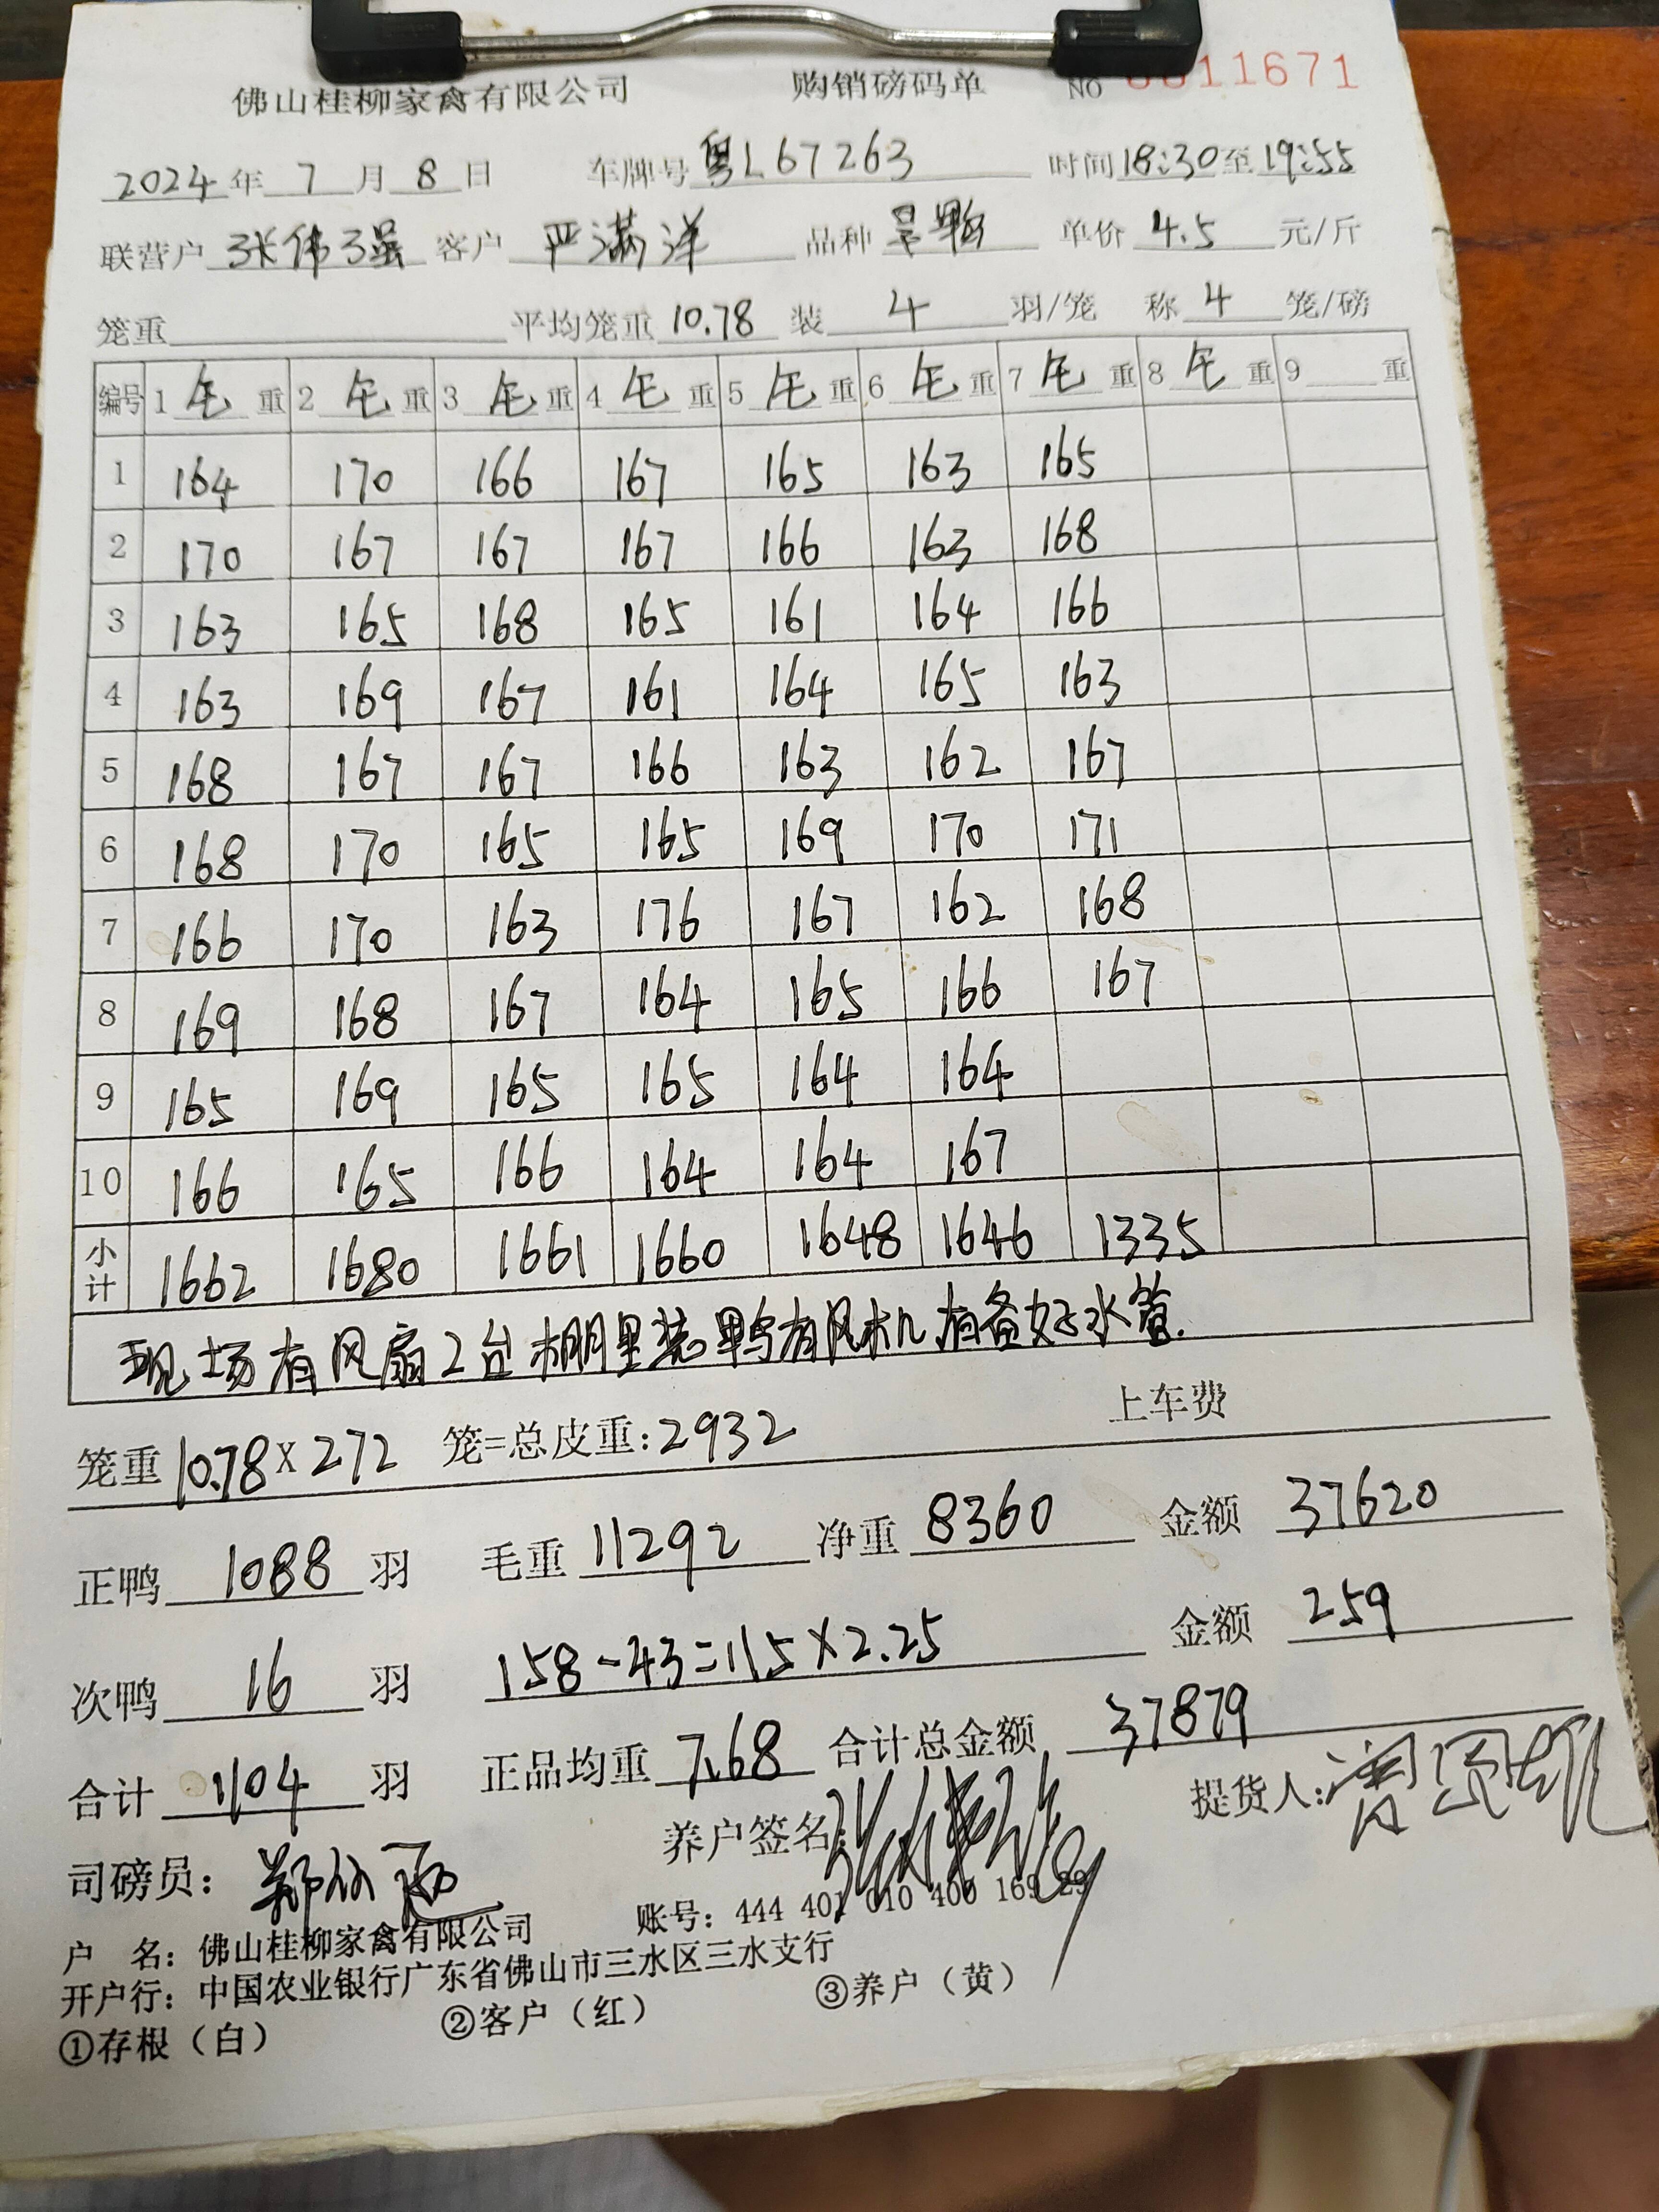 佛山桂柳家禽有限公司 购销磅码单 NO 0811671
2024年 7 月 8 日 车牌号 粤L67263 时间 18:30 至 19:55
联营户 张伟强 客户 严满洋 品种 单价 4.5 元/斤
笼重 平均笼重 10.78 装 4 羽/笼 称 4 笼/磅
编号 1 毛 重 2 毛 重 3 毛 重 4 毛 重 5 毛 重 6 毛 重 7 毛 重 8 毛 重 9 重
1 164 170 166 167 165 163 165
2 170 167 167 167 166 163 168
3 163 165 168 165 161 164 166
4 163 169 167 161 164 165 163
5 168 167 167 166 163 162 167
6 168 170 165 165 169 170 171
7 166 170 163 176 167 162 168
8 169 168 167 164 165 166 167
9 165 169 165 165 164 164
10 166 165 166 164 164 167
小计 1662 1680 1661 1660 1648 1646 1335
现场有风扇2台棚里装鸭有风机有备好水管.
笼重 10.78 X 272 笼=总皮重:2932 上车费
正鸭 1088 羽 毛重 11292 净重 8360 金额 37620
次鸭 16 羽 158-43=115×2.25 金额 259
合计 1104 羽 正品均重 7.68 合计总金额 37879
司磅员: 养户签名: 提货人:
户 名: 佛山桂柳家禽有限公司 账号: 444 401 010 400 169 29
开户行: 中国农业银行广东省佛山市三水区三水支行
①存根(白) ②客户(红) ③养户(黄)